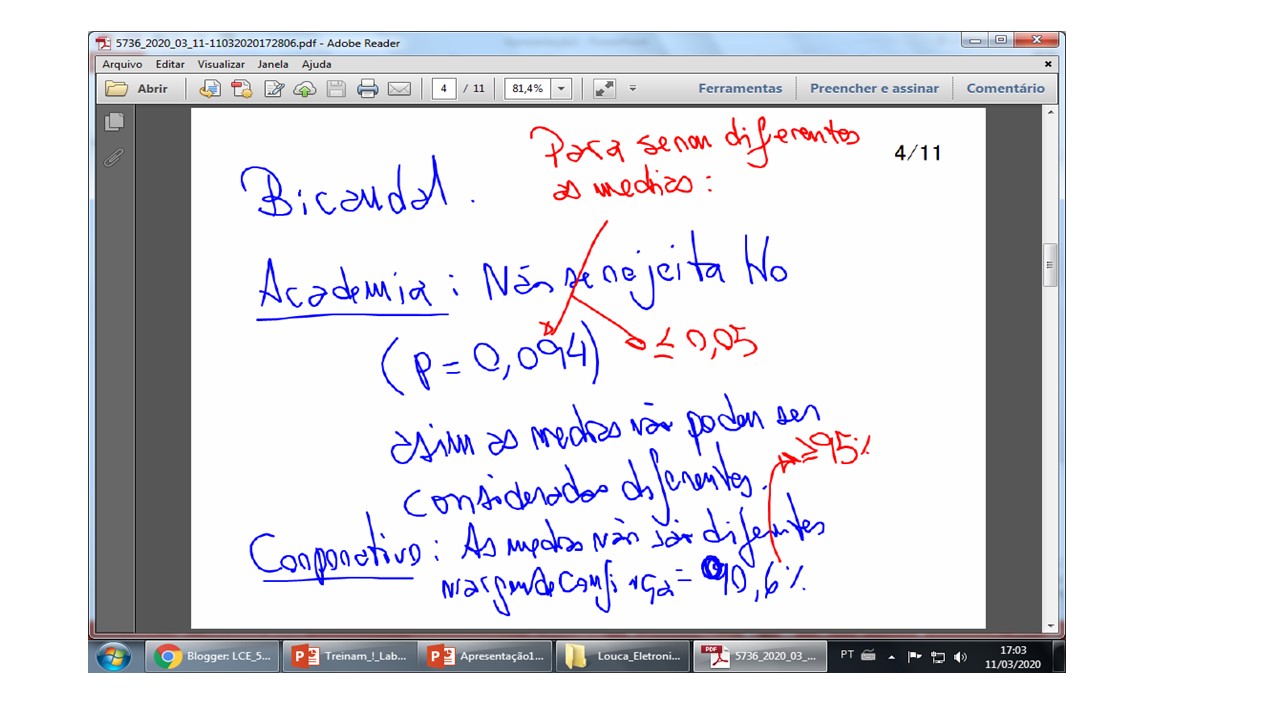 5736_2020_03_11-11032020172806.pdf - Adobe Reader
Arquivo Editar Visualizar Janela Ajuda
Abrir 4 / 11 81,4% Ferramentas Preencher e assinar Comentário
4/11
Para serem diferentes
as medias:
Bicaudal.
Academia: Não se rejeita Ho
(p = 0,094) ≤ 0,05
assim as medias não podem ser
consideradas diferentes. ≥95%
Corporativo: As medias não são diferentes
margem de confiança = 90,6%
Blogger: LCE_5... Treinam_!_Lab... Apresentação1... Louca_Eletroni... 5736_2020_03_... PT 17:03
11/03/2020